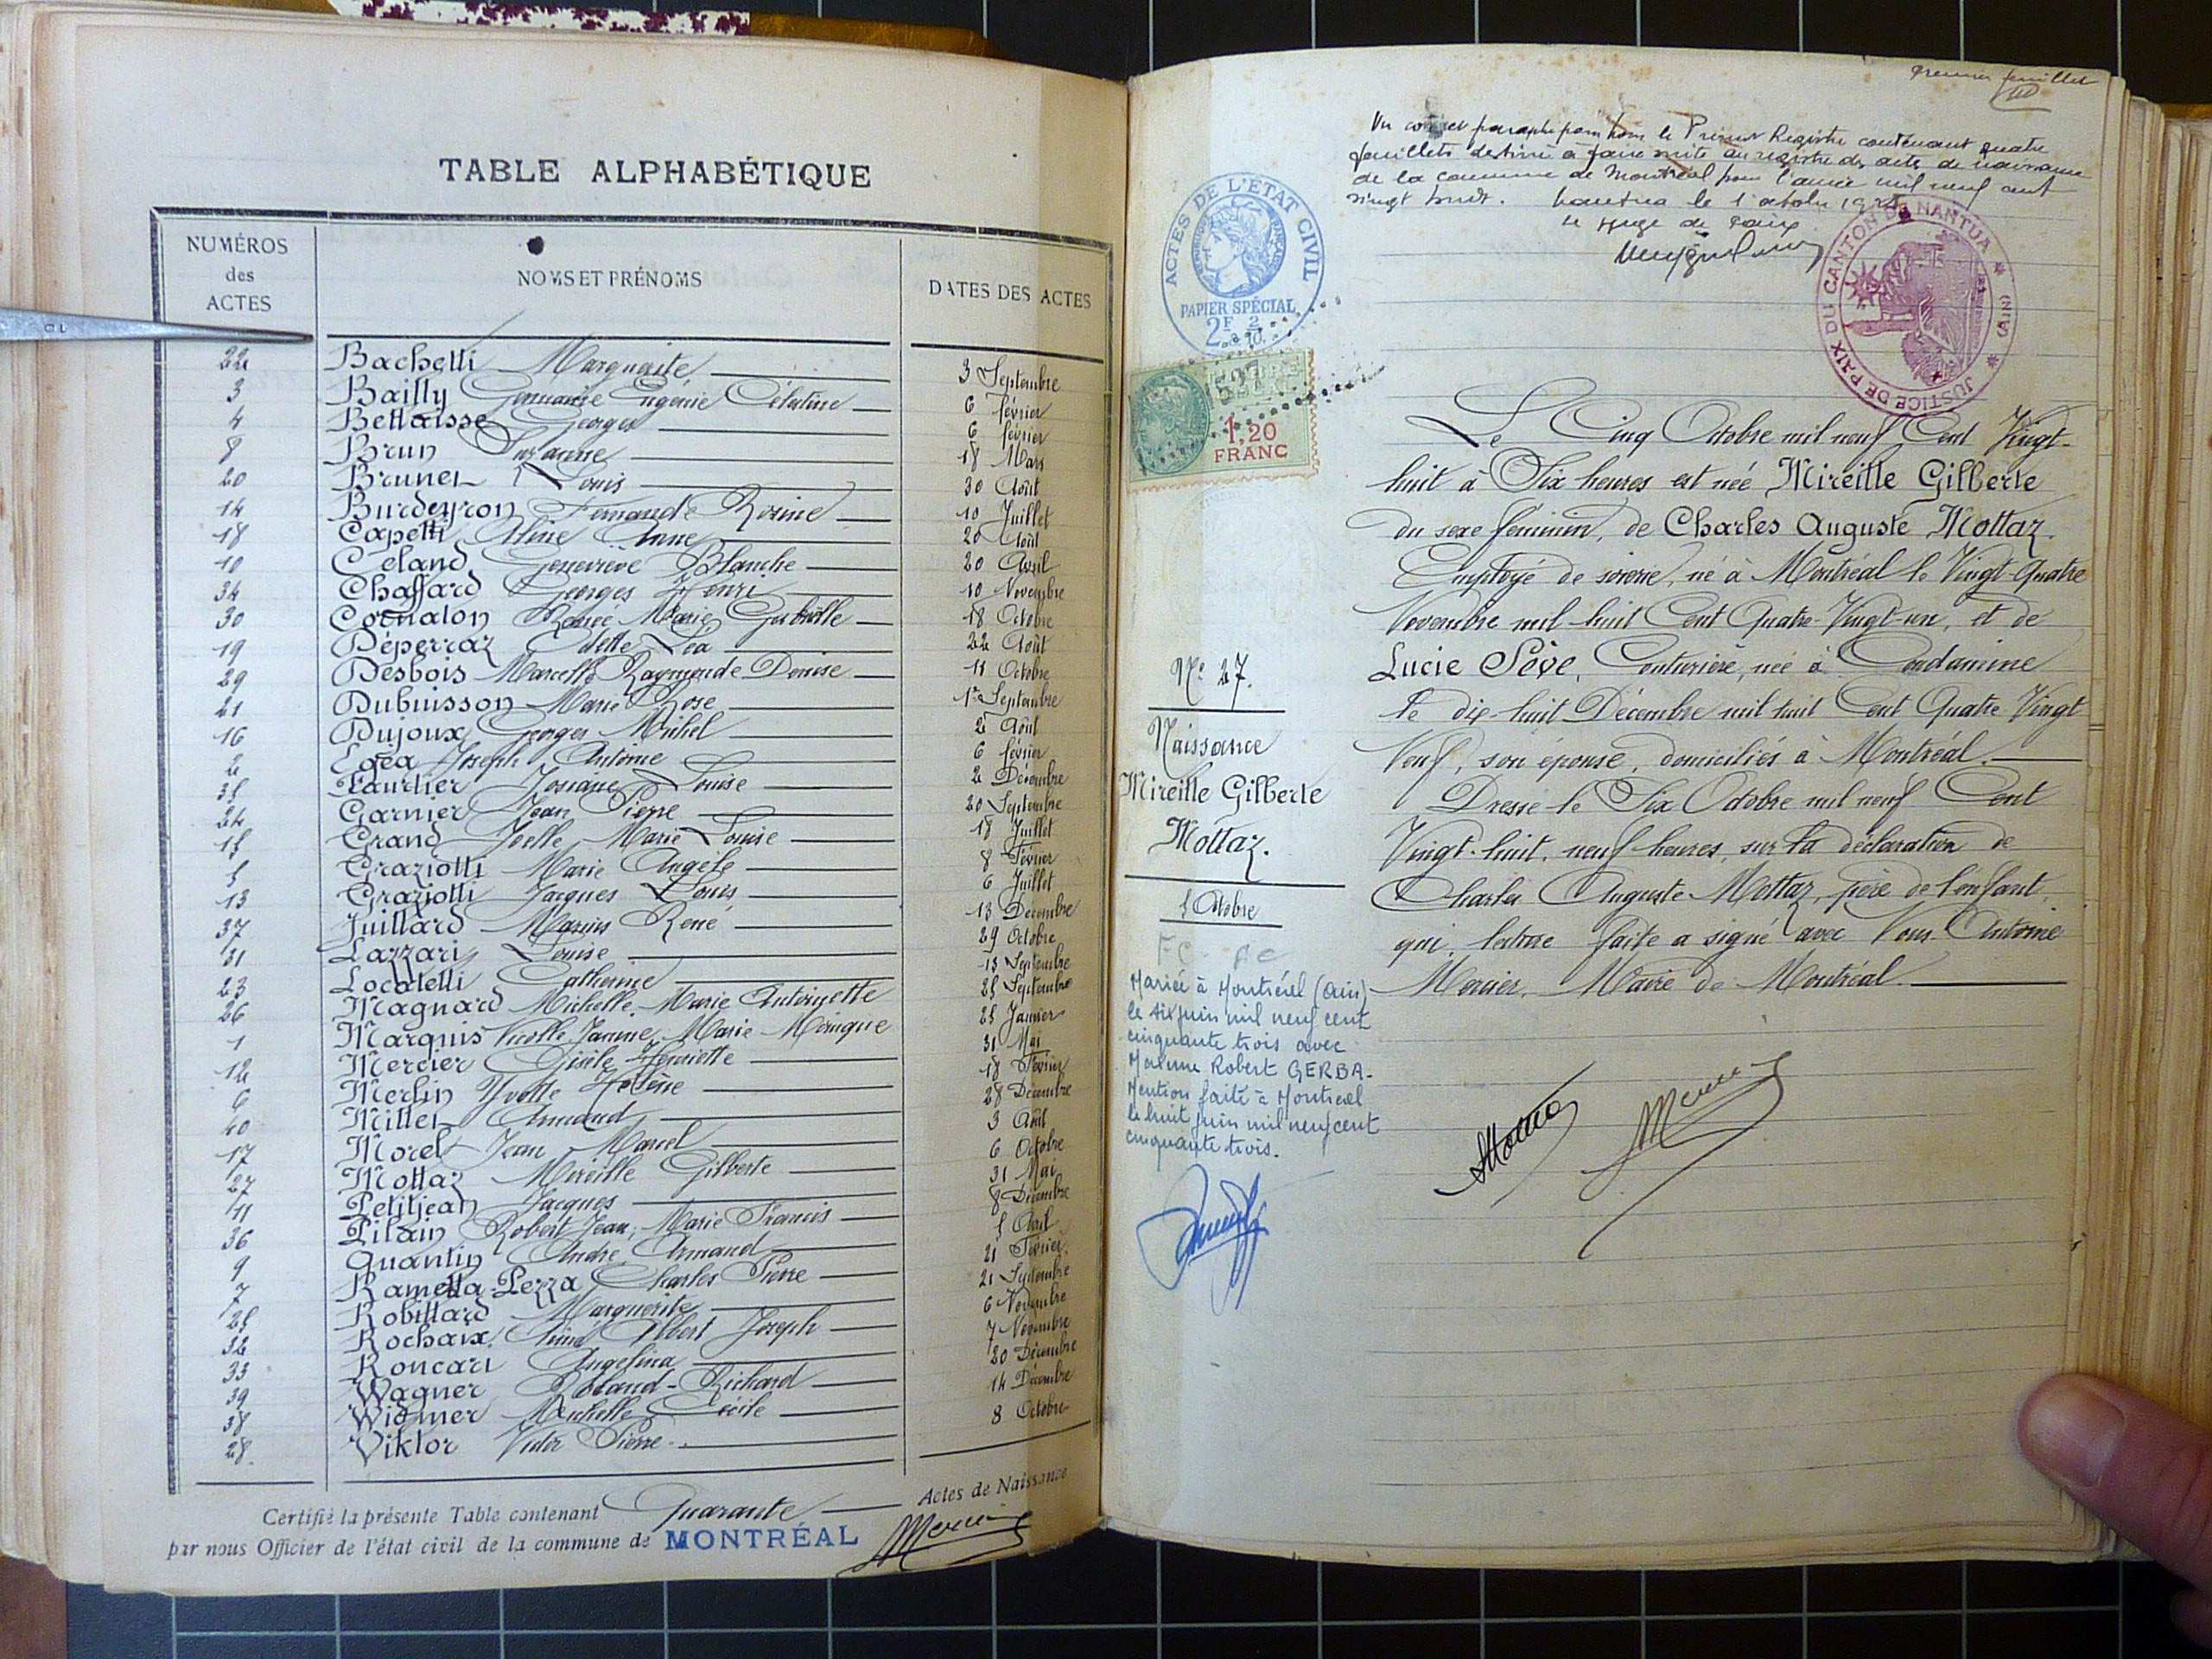 TABLE ALPHABÉTIQUE
NUMÉROS
des
ACTES
NOMS ET PRÉNOMS
DATES DES ACTES
22 Bachetti Marguerite 3 Septembre
3 Bailly Germaine Eugénie Célestine 6 février
4 Bettaisse Georges 6 février
8 Brun Suzanne 18 Mars
20 Brunet Louis 30 Août
14 Burdeyron Fernande Rosine 10 Juillet
18 Capetti Aline Anne 20 Août
10 Celand Geneviève Blanche 20 Avril
34 Chaffard Georges Henri 10 Novembre
30 Cornaton Renée Marie Gabrielle 18 Octobre
19 Déperraz Odette Léa 22 Août
29 Desbois Marcelle Raymonde Denise 11 Octobre
21 Dubuisson Marie Rose 1er Septembre
16 Dujoux Georges Michel 2 Août
2 Egéa Joseph Antoine 6 février
35 Faurtier Josiane Louise 2 Décembre
24 Garnier Jean Pierre 20 Septembre
15 Grand Joelle Marie Louise 18 Juillet
5 Graziotti Marie Angèle 8 Février
13 Graziotti Jacques Louis 6 Juillet
37 Juillard Marius René 13 Décembre
31 Lazzari Louise 29 Octobre
23 Locatelli Catherine 13 Septembre
26 Magnard Michelle Marie Antoinette 25 Septembre
1 Marquis Nicolle Jeanne Marie Monique 25 Janvier
12 Mercier Gisèle Henriette 31 Mai
6 Merlin Yvette Hélène 18 Février
40 Millet Armand 28 Décembre
17 Morel Jean Marcel 3 Août
27 Mottaz Mireille Gilberte 6 Octobre
11 Petitjean Jacques 31 Mai
36 Pilain Robert Jean, Marie Francis 8 Décembre
9 Quantin André Armand 5 Avril
7 Ramella-Pezza Charles Pierre 21 Février
25 Robillard Marguerite 21 Septembre
32 Rochaix Aimé Albert Joseph 6 Novembre
33 Roncari Angelina 7 Novembre
39 Wagner Roland-Richard 20 Décembre
38 Widmer Michelle Cécile 14 Décembre
28 Viktor Victor Pierre 8 Octobre
Certifié la présente Table contenant Quarante Actes de Naissance
par nous Officier de l'état civil de la commune de MONTRÉAL
Mercier
premier feuillet
Vu coté et paraphé par nous le Présent Registre contenant quatre
feuillets destiné à faire suite au registre des actes de naissance
de la commune de Montréal pour l'année mil neuf cent
vingt huit. Nantua le 1 octobre 1928
Le Juge de Paix
ACTES DE L'ETAT CIVIL
PAPIER SPÉCIAL
2F 2/10
1,20
FRANC
JUSTICE DE PAIX DU CANTON DE NANTUA (AIN)
N° 27.
Naissance
Mireille Gilberte
Mottaz.
5 Octobre
Le Cinq Octobre mil neuf Cent Vingt-
huit à Six heures est née Mireille Gilberte
du sexe féminin, de Charles Auguste Mottaz.
Employé de soierie, né à Montréal le Vingt-Quatre
Novembre mil-huit Cent Quatre-Vingt-un, et de
Lucie Sève, Couturière, née à Condamine
le dix-huit Décembre mil huit Cent Quatre Vingt
Neuf, son épouse, domiciliés à Montréal.
Dressé le Six Octobre mil neuf Cent
Vingt-huit, neuf heures, sur la déclaration de
Charles Auguste Mottaz, père de l'enfant,
qui, lecture faite a signé avec Nous Antoine
Mercier, Maire de Montréal.
Mariée à Montréal (Ain)
le six juin mil neuf cent
cinquante trois avec
Maxime Robert GERBA.
Mention faite à Montréal
le huit juin mil neuf cent
cinquante trois.
Mottaz
Mercier